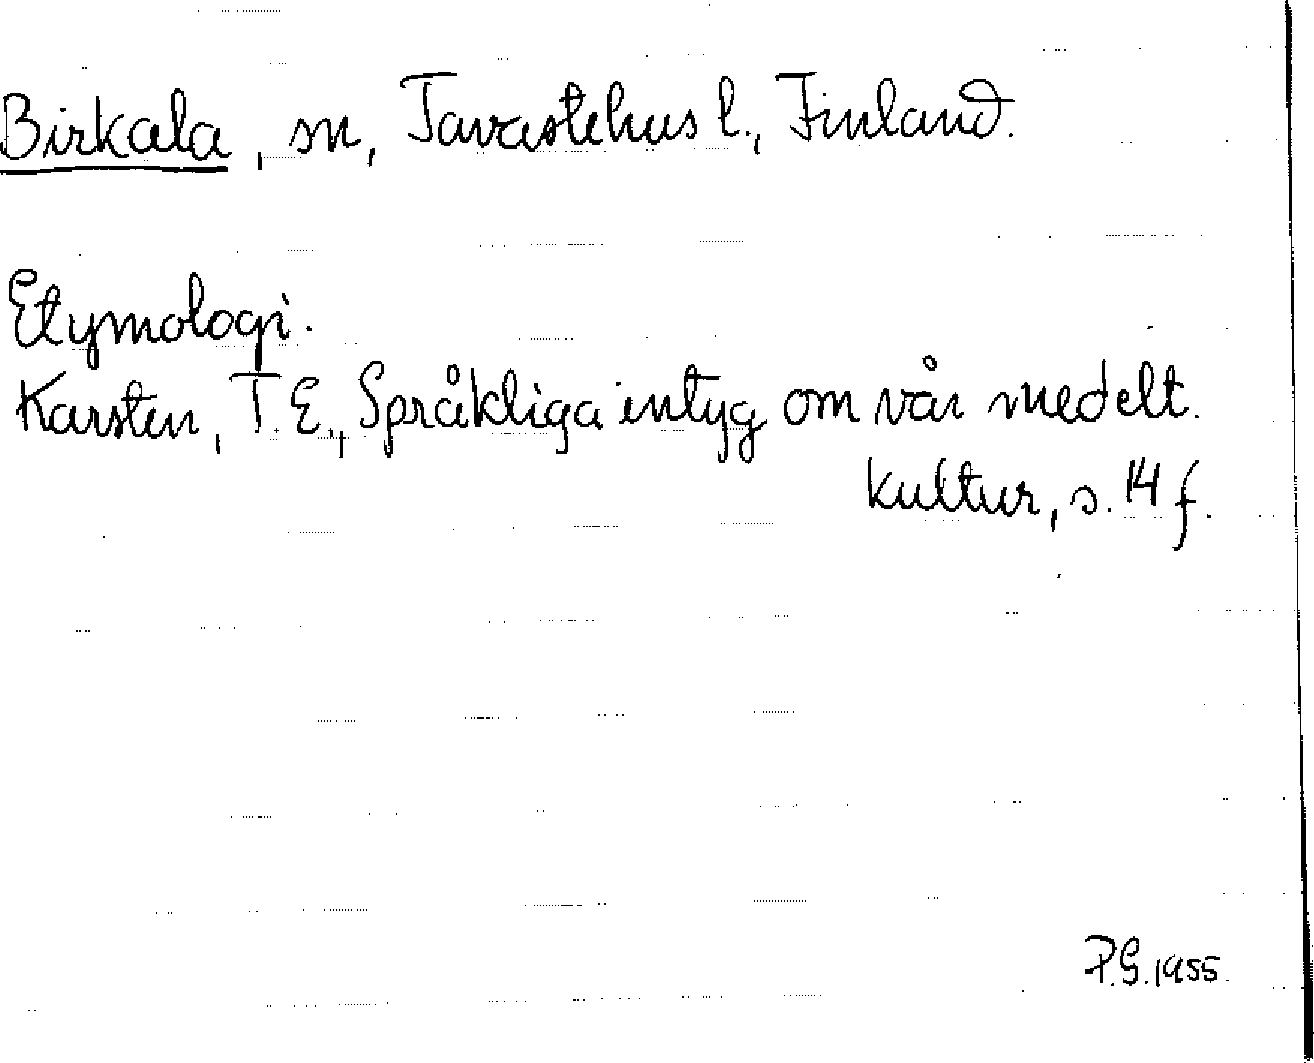 Birkala, sn, Tavastehus l., Finland.
Etymologi.
Karsten, T.E., Språkliga intyg om vår medelt.
kultur, s. 14 f.
P.G. 1955.